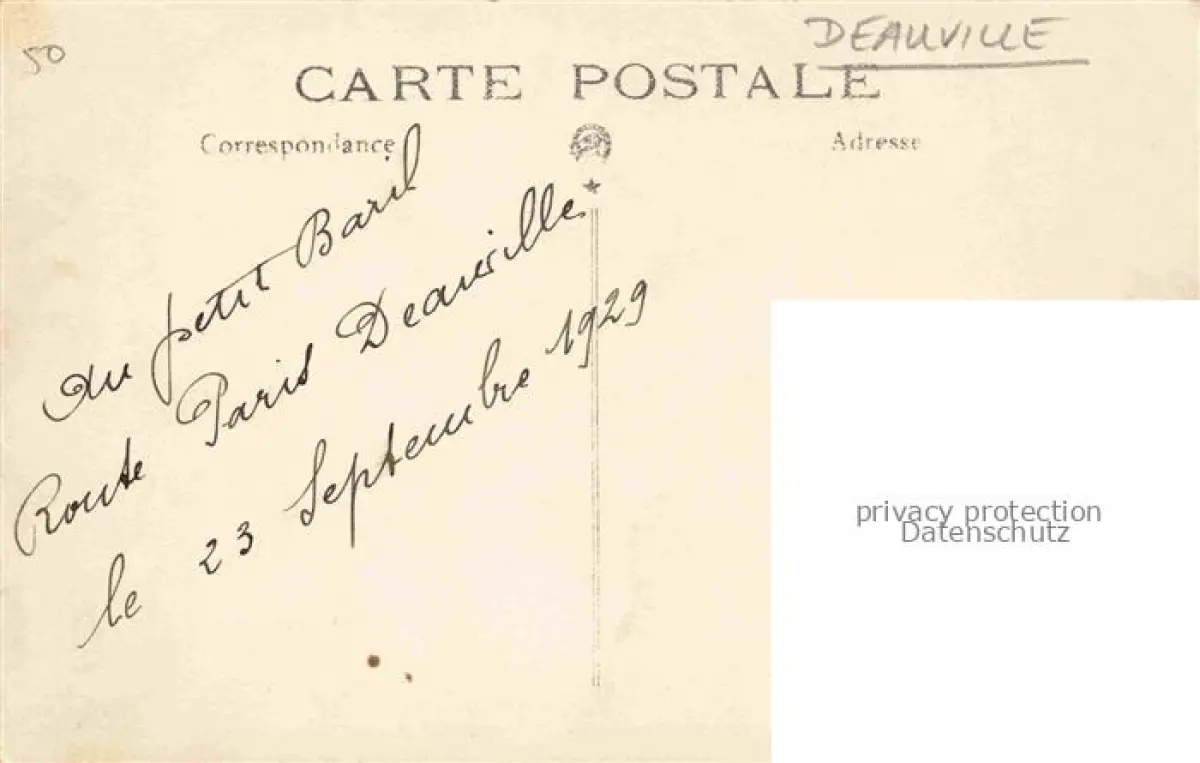 50
DEAUVILLE
CARTE POSTALE
Correspondance
Adresse
au petit Baril
Route Paris Deauville
le 23 Septembre 1929
privacy protection
Datenschutz